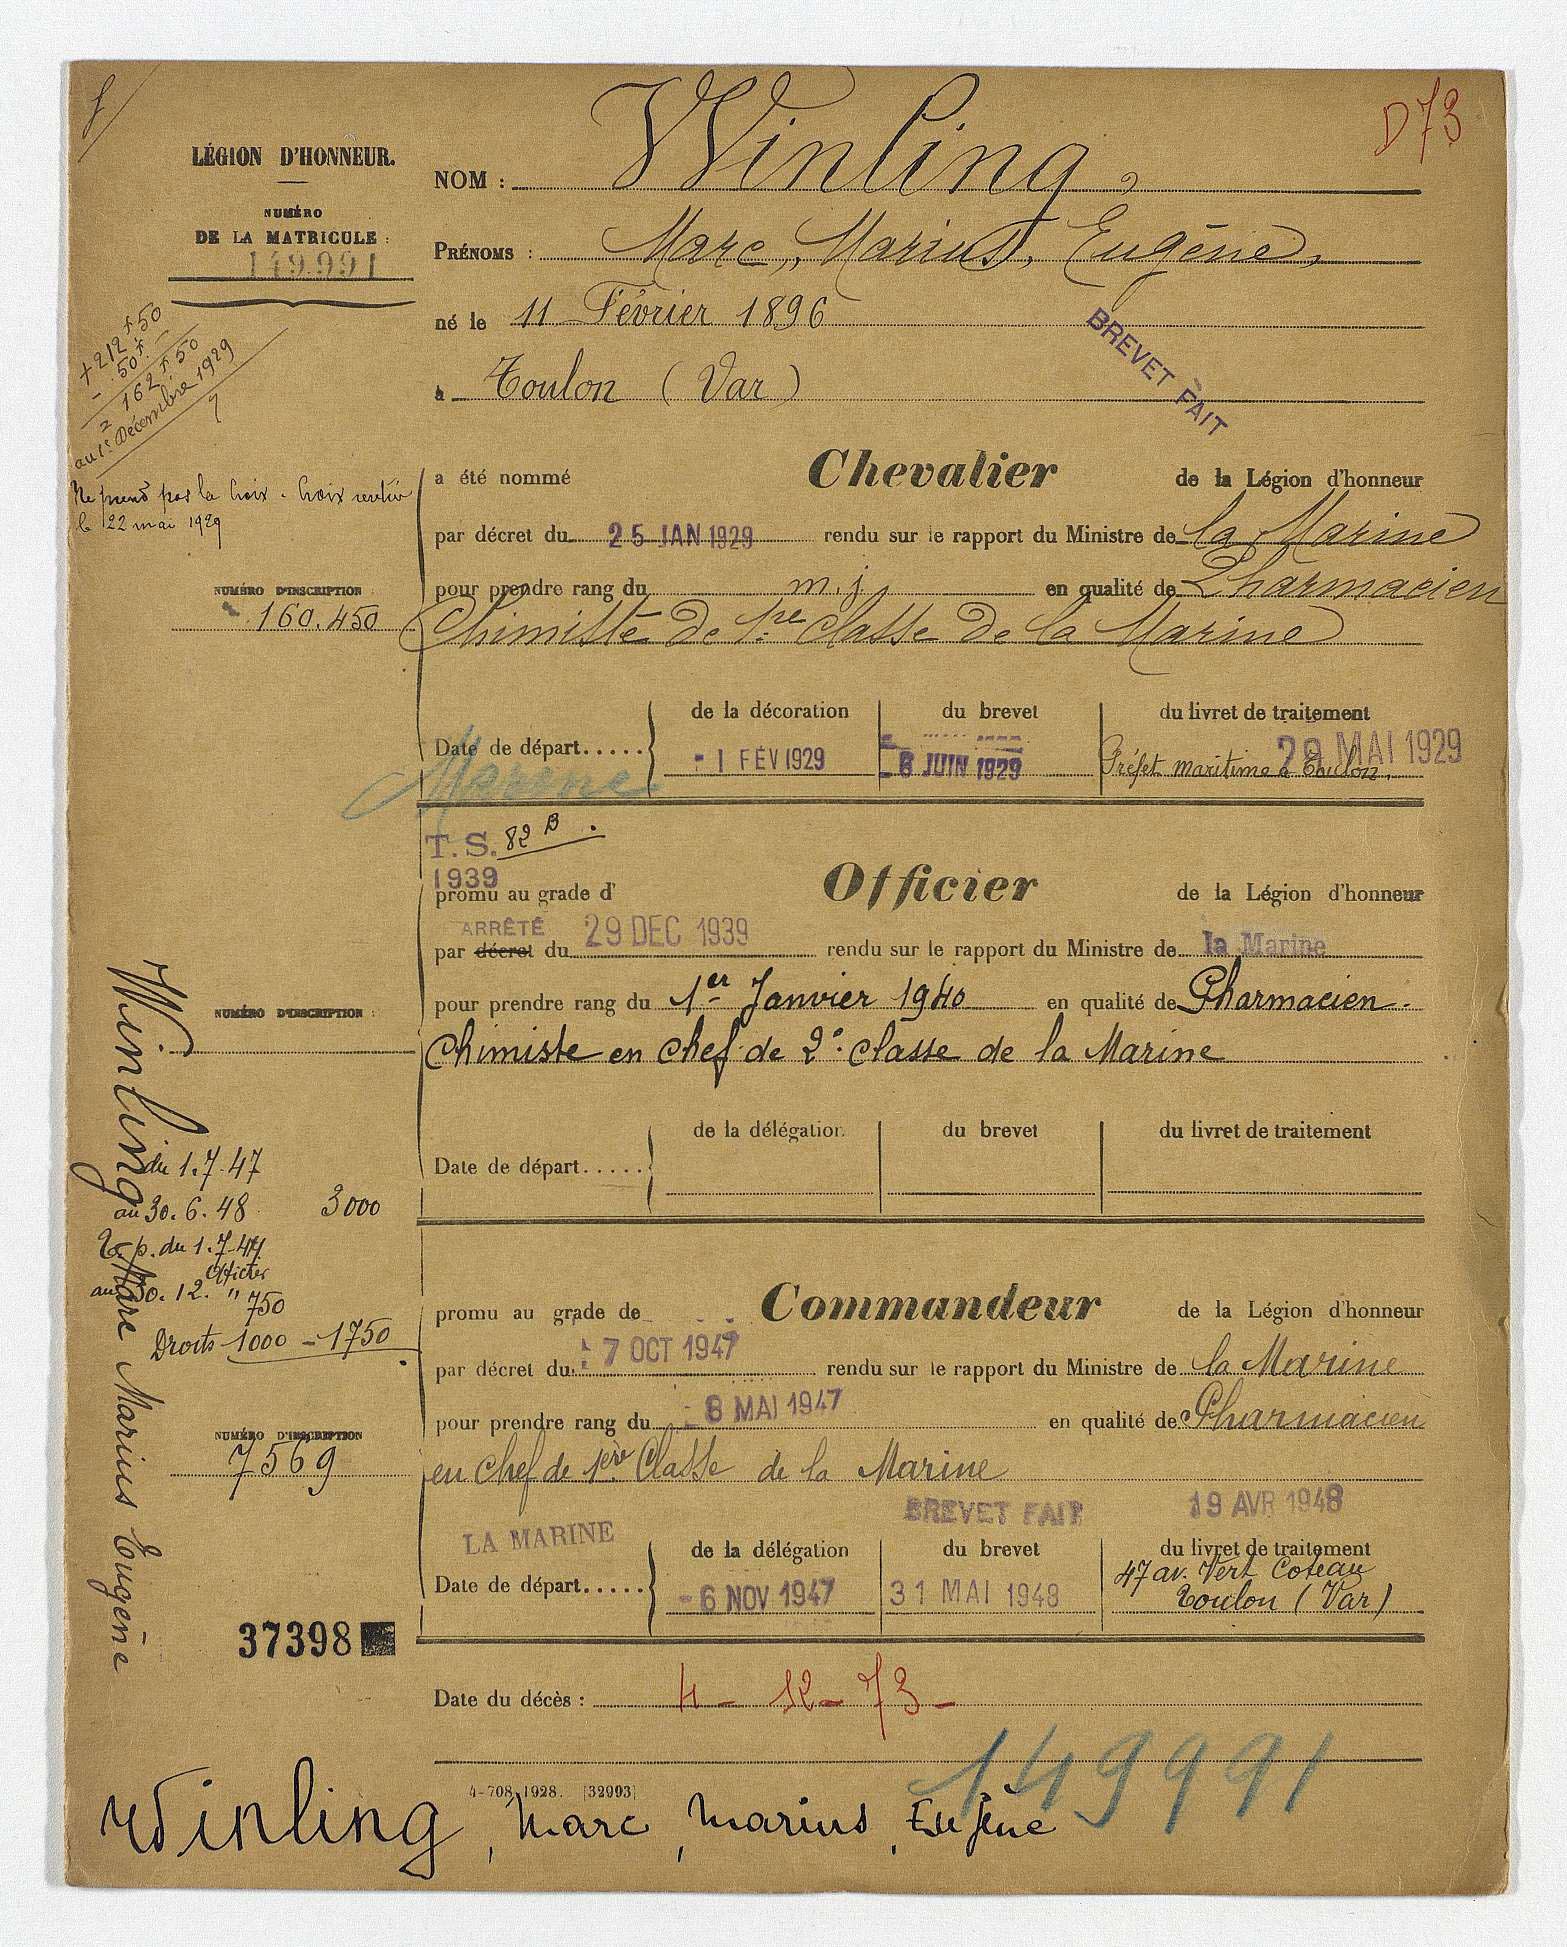 D73
LÉGION D'HONNEUR.
NUMÉRO
DE LA MATRICULE :
149.991
NOM : Winling,
PRÉNOMS : Marc, Marius, Eugène,
né le 11 Février 1896
à Toulon (Var)
BREVET FAIT
+ 212f50
- 50f.
162f50
au 1er Décembre 1929
Ne prend pas la croix. Croix
le 22 mai 1929
a été nommé Chevalier de la Légion d'honneur
par décret du 25 JAN 1929 rendu sur le rapport du Ministre de la Marine
pour prendre rang du m. j. en qualité de Pharmacien
Chimiste de 1re classe de la Marine
NUMÉRO D'INSCRIPTION
160.450
de la décoration du brevet du livret de traitement
Date de départ..... - 1 FÉV 1929 - 8 JUIN 1929 29 MAI 1929
Préfet maritime à Toulon.
Marine
T. S. 82 B.
1939
promu au grade d' Officier de la Légion d'honneur
ARRÊTÉ
par décret du 29 DEC 1939 rendu sur le rapport du Ministre de la Marine
pour prendre rang du 1er Janvier 1940 en qualité de Pharmacien
Chimiste en chef de 2e classe de la Marine
NUMÉRO D'INSCRIPTION :
de la délégation du brevet du livret de traitement
Date de départ.....
du 1.7.47
au 30.6.48 3000
T. p. du 1.7.47
Officier
au 30.12. " 750
Droits 1000 - 1750
promu au grade de Commandeur de la Légion d'honneur
par décret du 7 OCT 1947 rendu sur le rapport du Ministre de la Marine
pour prendre rang du - 8 MAI 1947 en qualité de Pharmacien
en chef de 1ère Classe de la Marine
NUMÉRO D'INSCRIPTION
7569
LA MARINE BREVET FAIT 19 AVR 1948
de la délégation du brevet du livret de traitement
Date de départ..... - 6 NOV 1947 31 MAI 1948 47 av. Vert Coteau
Toulon (Var)
Winling Marc Marius Eugène
37398
Date du décès : 4 - 12 - 73 -
149991
4-708-1928. [32993]
Winling, Marc, Marius, Eugène